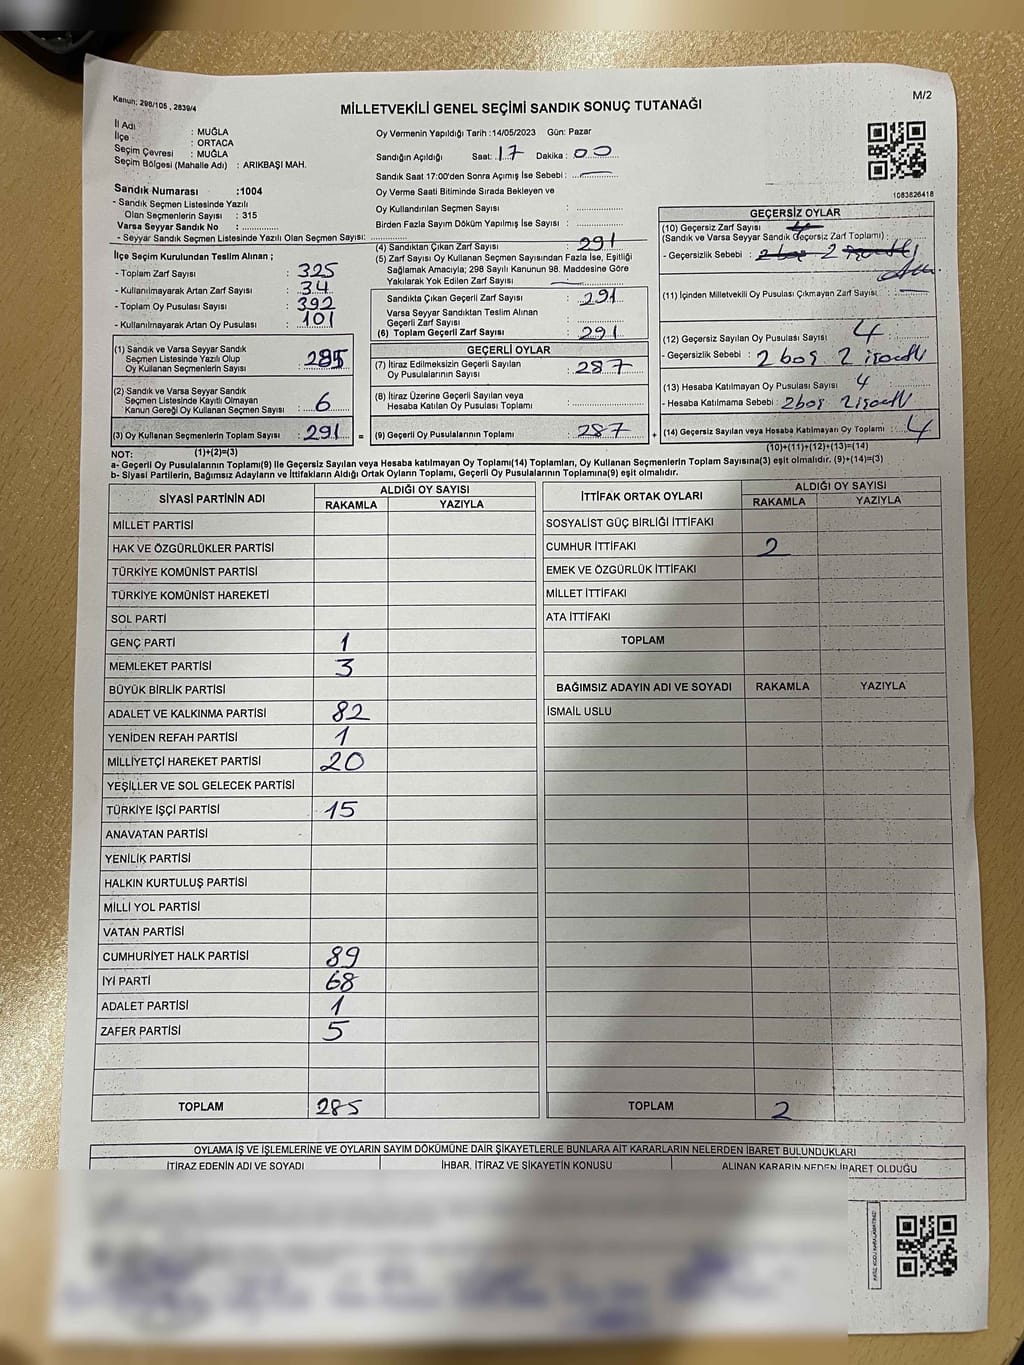 Kanun: 298/105 , 2839/4
MİLLETVEKİLİ GENEL SEÇİMİ SANDIK SONUÇ TUTANAĞI
M/2
İl Adı : MUĞLA
İlçe : ORTACA
Seçim Çevresi : MUĞLA
Seçim Bölgesi (Mahalle Adı) : ARIKBAŞI MAH.
Sandık Numarası :1004
- Sandık Seçmen Listesinde Yazılı
Olan Seçmenlerin Sayısı : 315
Varsa Seyyar Sandık No :
- Seyyar Sandık Seçmen Listesinde Yazılı Olan Seçmen Sayısı:
İlçe Seçim Kurulundan Teslim Alınan ;
- Toplam Zarf Sayısı : 325
- Kullanılmayarak Artan Zarf Sayısı : 34
- Toplam Oy Pusulası Sayısı : 392
- Kullanılmayarak Artan Oy Pusulası : 101
(1) Sandık ve Varsa Seyyar Sandık
Seçmen Listesinde Yazılı Olup
Oy Kullanan Seçmenlerin Sayısı : 285
(2) Sandık ve Varsa Seyyar Sandık
Seçmen Listesinde Kayıtlı Olmayan
Kanun Gereği Oy Kullanan Seçmen Sayısı : 6
(3) Oy Kullanan Seçmenlerin Toplam Sayısı : 291 =
Oy Vermenin Yapıldığı Tarih :14/05/2023 Gün: Pazar
Sandığın Açıldığı Saat: 17 Dakika : 00
Sandık Saat 17:00'den Sonra Açımış İse Sebebi :
Oy Verme Saati Bitiminde Sırada Bekleyen ve
Oy Kullandırılan Seçmen Sayısı :
Birden Fazla Sayım Döküm Yapılmış İse Sayısı :
(4) Sandıktan Çıkan Zarf Sayısı : 291
(5) Zarf Sayısı Oy Kullanan Seçmen Sayısından Fazla İse, Eşitliği
Sağlamak Amacıyla; 298 Sayılı Kanunun 98. Maddesine Göre
Yakılarak Yok Edilen Zarf Sayısı :
Sandıkta Çıkan Geçerli Zarf Sayısı : 291
Varsa Seyyar Sandıktan Teslim Alınan
Geçerli Zarf Sayısı :
(6) Toplam Geçerli Zarf Sayısı : 291
GEÇERLİ OYLAR
(7) İtiraz Edilmeksizin Geçerli Sayılan
Oy Pusulalarının Sayısı : 287
(8) İtiraz Üzerine Geçerli Sayılan veya
Hesaba Katılan Oy Pusulası Toplamı :
(9) Geçerli Oy Pusulalarının Toplamı : 287 +
1083826418
GEÇERSİZ OYLAR
(10) Geçersiz Zarf Sayısı
(Sandık ve Varsa Seyyar Sandık Geçersiz Zarf Toplamı) :
- Geçersizlik Sebebi :
(11) İçinden Milletvekili Oy Pusulası Çıkmayan Zarf Sayısı :
(12) Geçersiz Sayılan Oy Pusulası Sayısı : 4
- Geçersizlik Sebebi : 2 boş 2 işaretli
(13) Hesaba Katılmayan Oy Pusulası Sayısı : 4
- Hesaba Katılmama Sebebi : 2boş 2işaretli
(14) Geçersiz Sayılan veya Hesaba Katılmayan Oy Toplamı : 4
NOT: (1)+(2)=(3)
(10)+(11)+(12)+(13)=(14)
a- Geçerli Oy Pusulalarının Toplamı(9) ile Geçersiz Sayılan veya Hesap katılmayan Oy Toplamı(14) Toplamları, Oy Kullanan Seçmenlerin Toplam Sayısına(3) eşit olmalıdır. (9)+(14)=(3)
b- Siyasi Partilerin, Bağımsız Adayların ve İttifakların Aldığı Ortak Oyların Toplamı, Geçerli Oy Pusulalarının Toplamına(9) eşit olmalıdır.
SİYASİ PARTİNİN ADI ALDIĞI OY SAYISI
RAKAMLA YAZIYLA
MİLLET PARTİSİ
HAK VE ÖZGÜRLÜKLER PARTİSİ
TÜRKİYE KOMÜNİST PARTİSİ
TÜRKİYE KOMÜNİST HAREKETİ
SOL PARTİ
GENÇ PARTİ 1
MEMLEKET PARTİSİ 3
BÜYÜK BİRLİK PARTİSİ
ADALET VE KALKINMA PARTİSİ 82
YENİDEN REFAH PARTİSİ 1
MİLLİYETÇİ HAREKET PARTİSİ 20
YEŞİLLER VE SOL GELECEK PARTİSİ
TÜRKİYE İŞÇİ PARTİSİ 15
ANAVATAN PARTİSİ
YENİLİK PARTİSİ
HALKIN KURTULUŞ PARTİSİ
MİLLİ YOL PARTİSİ
VATAN PARTİSİ
CUMHURİYET HALK PARTİSİ 89
İYİ PARTİ 68
ADALET PARTİSİ 1
ZAFER PARTİSİ 5
TOPLAM 285
İTTİFAK ORTAK OYLARI ALDIĞI OY SAYISI
RAKAMLA YAZIYLA
SOSYALİST GÜÇ BİRLİĞİ İTTİFAKI
CUMHUR İTTİFAKI 2
EMEK VE ÖZGÜRLÜK İTTİFAKI
MİLLET İTTİFAKI
ATA İTTİFAKI
TOPLAM
BAĞIMSIZ ADAYIN ADI VE SOYADI RAKAMLA YAZIYLA
İSMAİL USLU
TOPLAM 2
OYLAMA İŞ VE İŞLEMLERİNE VE OYLARIN SAYIM DÖKÜMÜNE DAİR ŞİKAYETLERLE BUNLARA AİT KARARLARIN NELERDEN İBARET BULUNDUKLARI
İTİRAZ EDENİN ADI VE SOYADI İHBAR, İTİRAZ VE ŞİKAYETİN KONUSU ALINAN KARARIN NEDEN İBARET OLDUĞU